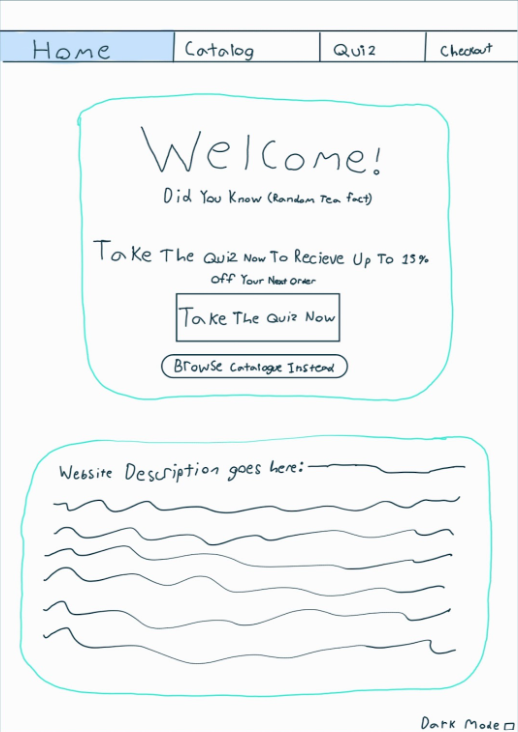 Home Catalog Quiz Checkout
Welcome!
Did You Know (Random Tea fact)
Take The Quiz Now To Recieve Up To 15%
Off Your Next Order
Take The Quiz Now
Browse Catalogue Instead
Website Description goes here:
Dark Mode